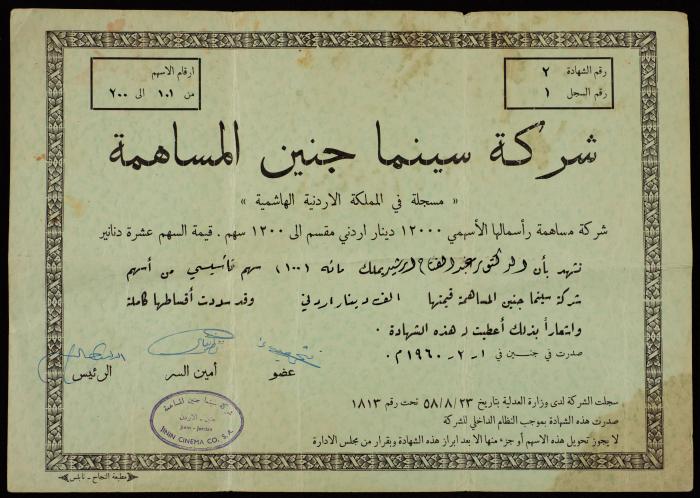 رقم الشهادة ٢
رقم السجل ١
ارقام الاسهم
من ١٠١ الى ٢٠٠
شركة سينما جنين المساهمة
« مسجلة في المملكة الاردنية الهاشمية »
شركة مساهمة رأسمالها الأسمي ١٢٠٠٠ دينار اردني مقسم الى ١٢٠٠ سهم . قيمة السهم عشرة دنانير
نشهد بأن الدكتور عبد الفتاح يملك مائه (١٠٠) سهم تأسيسي من أسهم
شركة سينما جنين المساهمة قيمتها الف دينار اردني وقد سددت أقساطها كاملة
واشعاراً بذلك أعطيت له هذه الشهادة .
صدرت في جنين في ١-٢-١٩٦٠م.
عضو
أمين السر
الرئيس
شركة سينما جنين المساهمة
جنين - الاردن
Jinin - Jordan
JININ CINEMA CO. S.A.
سجلت الشركة لدى وزارة العدلية بتاريخ ٥٨/٨/٢٣ تحت رقم ١٨١٣
صدرت هذه الشهادة بموجب النظام الداخلي للشركة
لا يجوز تحويل هذه الاسهم أو جزء منها الا بعد ابراز هذه الشهادة وبقرار من مجلس الادارة
مطبعة النجاح - نابلس